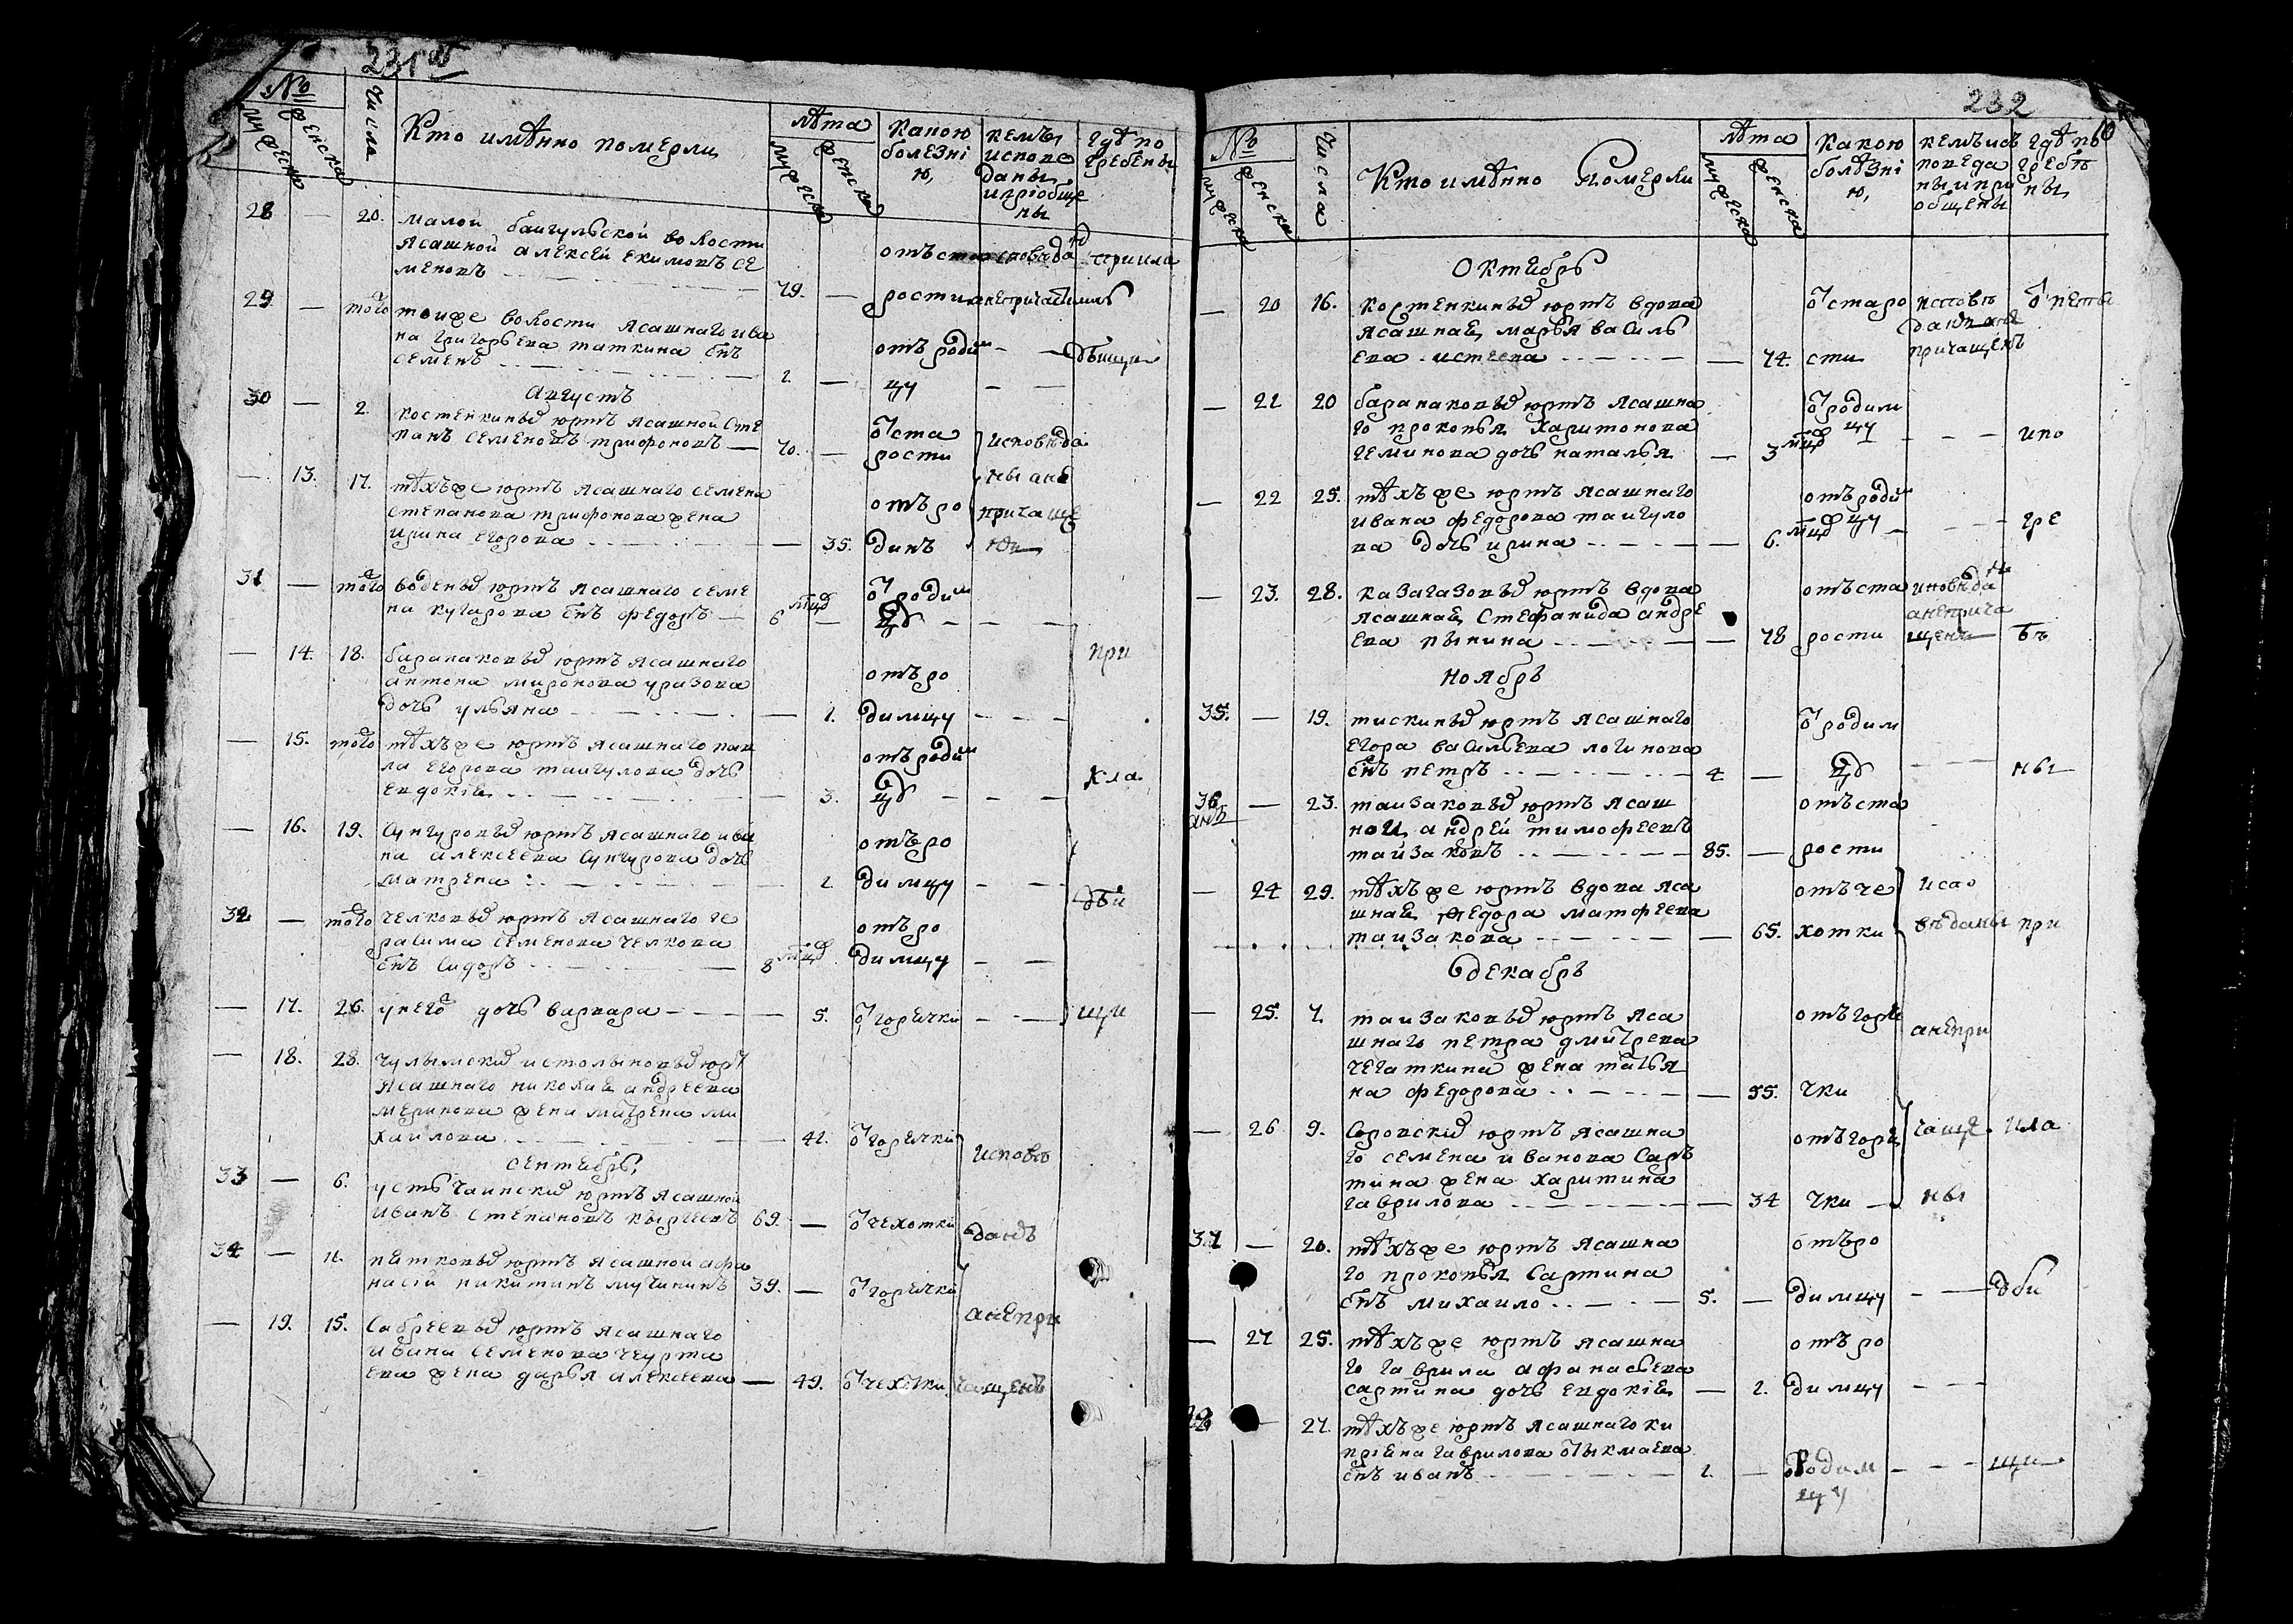 231 об
№
мужеска
женска
Числа
Кто имѣнно померли
лѣта
мужеска
женска
какою болезнію,
кемъ исповеданы и пріобщены
гдѣ погребены
28 — 20. малой баигульской волости
ясашной алеѯѣй екимовъ се
меновъ 79. — отъ старости
29 — того тоиже волости ясашнаго ива
на григорьева таткина снъ
семенъ 2. — отъ родимцу
августъ
30 — 2. костенкиныхъ юртъ ясашной сте
панъ семеновъ трифоновъ — 70. — от старости
исповѣда
ны а не
причаще
ны
— 13. 17. тѣхъже юртъ ясашнаго семена
степанова трифонова жена
ирина егорова — 35. отъ родинъ
31 — того воденыхъ юртъ ясашнаго семе
на кугарова снъ федоръ — 6 мцд — от родимцу
— 14. 18. баранаковыхъ юртъ ясашнаго
антона миронова уразова
дочь ульяна — 1. отъ родимцу — — —
при
— 15. того тѣхъже юртъ ясашнаго пав
ла егорова таигулова дочь
евдокіѧ — 3. отъ родимцу — — —
кла
— 16. 19. сунгуровыхъ юртъ ясашнаго ива
на алеѯеева сунгурова дочь
матрена — 2. отъ родимцу — —
дби
32 — того челковыхъ юртъ ясашнаго ге
расима семенова челкова
снъ сидоръ — 8 мцд отъ родимцу — —
— 17. 26. у него дочь варвара — — — 5. от горячки — — —
щи
— 18. 28. чулымских истолыновыхъ юрт
ясашнаго николаѧ андреева
мерикова жена матрена ми
хаилова — 42. от горячки
исповѣ
сентябрь,
33 — 6. усть чаинских юртъ ясашной
иванъ степановъ кыргеевъ 69. — от чехотки
данъ
34 — 11. пѧтковыхъ юртъ ясашной афа
насіи никитинъ мучининъ 39. — от горячки
а не при
— 19. 15. сабреевыхъ юртъ ясашнаго
ивана семенова чеурта
ева жена дарья алеѯеева — 49. от чехотки
чащенъ
232
№
мужеска
женска
Числа
Кто имѣнно Померли
лѣта
мужеска
женска
какою болѣзнію,
кемъ исповеданы и приобщены
гдѣ погребены
Октябрь
— 20 16. костенкиныхъ юртъ вдова
ясашнаѧ марья василь
ева истеева — 74. от старости исповѣ
дана а не
причащенъ
— 21 20 баранаковыхъ юртъ ясашна
го прокопья харитонова
чеминова дочь наталья — 3 мцд от родимцу — — —
— 22 25. тѣхъже юртъ ясашнаго
ивана федорова таигуло
ва дочь ирина — 6. мцд отъ родимцу — — — гре
— 23. 28. казагазовыхъ юртъ вдова
ясашнаѧ стефанида андре
ева пынина — 78 отъ старости
а не прича
щена
бъ
ноябрь
35. — 19. тискиныхъ юртъ ясашнаго
егора васильева логинова
снъ петръ — 4 — от родимцу — — —
ны
36 — 23. таизаковыхъ юртъ ясаш
ной андрей тимофеевъ
таизаковъ — 85. — отъ старости
— 24 29. тѣхъже юртъ вдова яса
шнаѧ федора матфеева
таизакова — 65. отъ чехотки
вѣданы
при
декабрь
— 25. 7. таизаковыхъ юртъ яса
шнаго петра дмитрева
чегаткина жена татья
на федорова — 55. отъ горячки
а не при
— 26 9. соровских юртъ ясашна
го семена иванова сар
тина жена харитина
гаврилова — 34 отъ горячки
чаще
ны
кла
37 — 20. тѣхъже юртъ ясашна
го прокопья сартина
снъ михаило — 5. — отъ родимцу — —
дби
— 27 25. тѣхъже юртъ ясашна
го гаврила афанасьева
сартина дочь евдокіѧ — 2. отъ родимцу — —
27. тѣхъже юртъ ясашнаго ки
пріѧна гаврилова отыкмаева
снъ иванъ — 2. — от родимцу — — —
щи